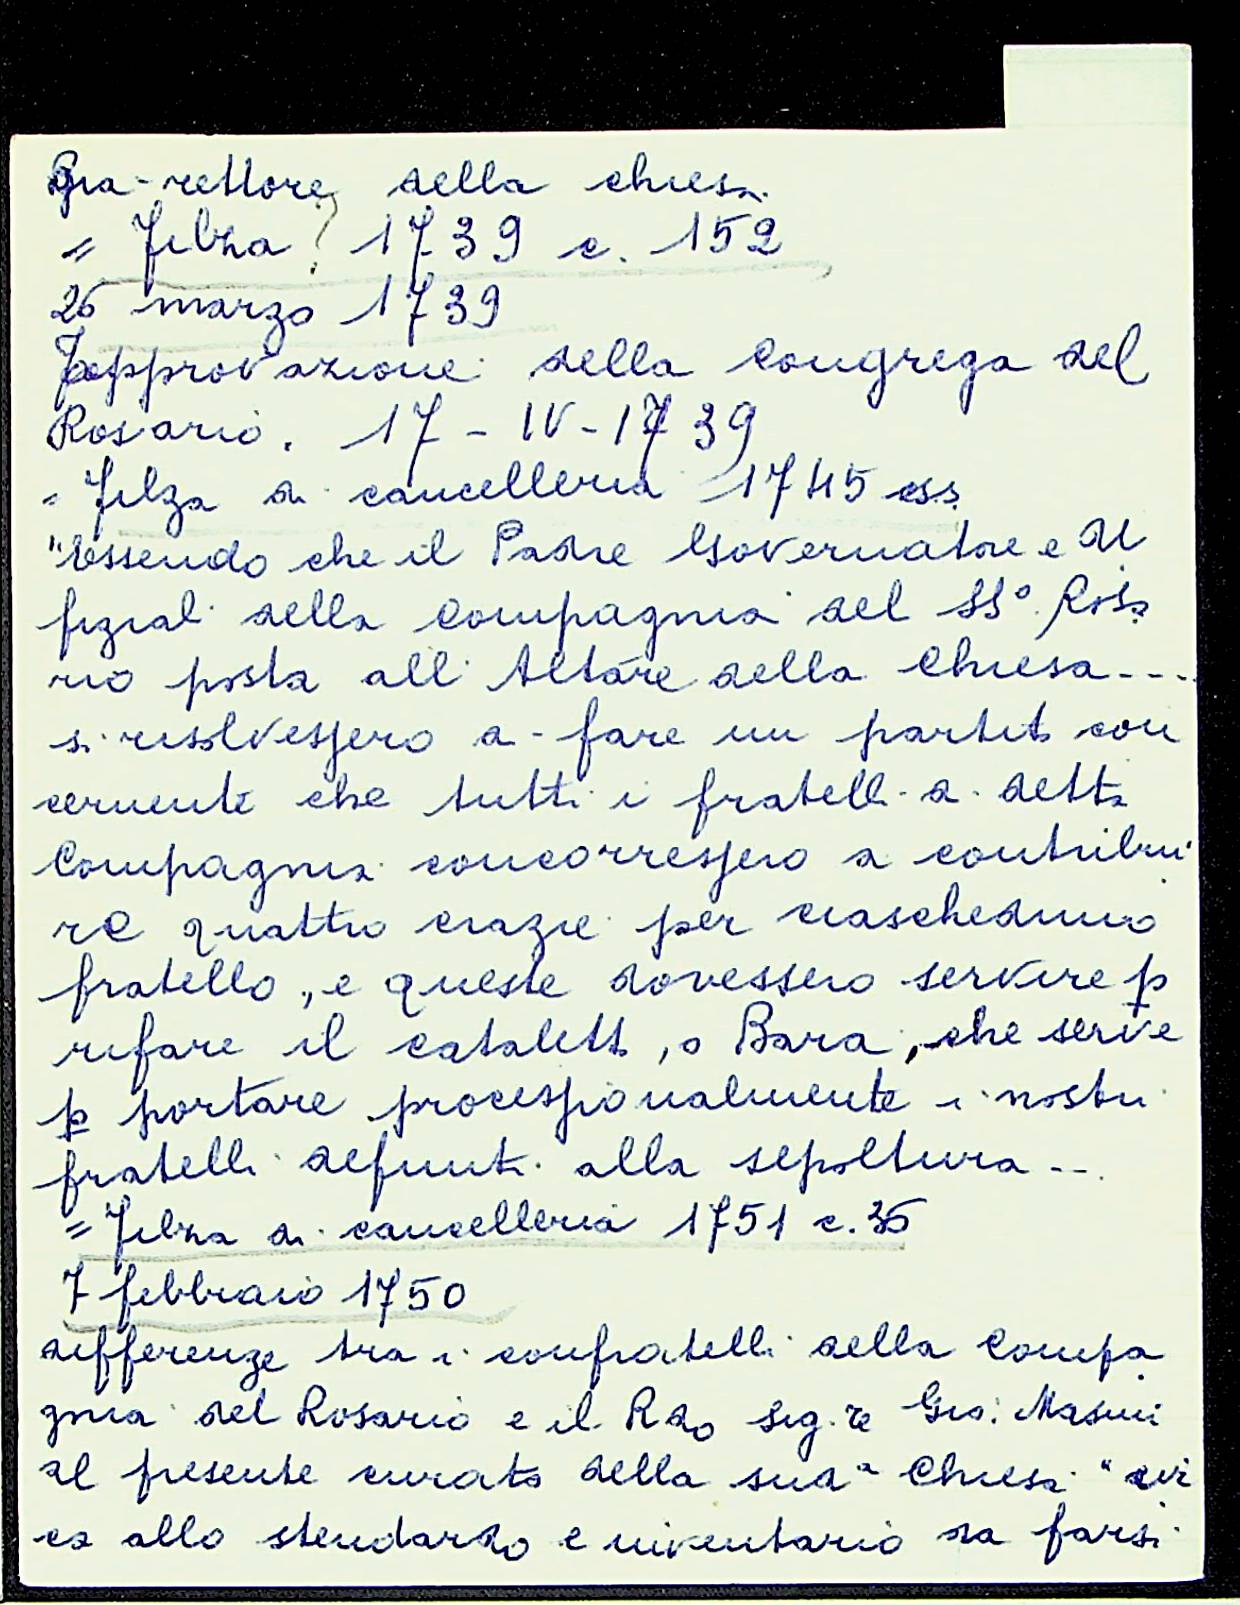 già rettore della chiesa.
= Filza 1739 c. 152
25 marzo 1739
approvazione della Congrega del
Rosario. 17 - IV - 1739
= Filza di cancelleria 1745 css.
"Essendo che il Padre Governatore e U
fiziali della Compagnia del SS° Rosa
rio posta all'Altare della Chiesa ....
si risolvessero a fare un partito con
cernente che tutti i fratelli di detta
Compagnia concorressero a contribui
re quattro crazie per ciascheduno
fratello, e queste dovessero servire p
rifare il cataletto, o Bara, che serve
p portare processionalmente i nostri
fratelli defunti alla sepoltura ...
= Filza di cancelleria 1751 c. 35
7 febbraio 1750
differenze tra i confratelli della Compa
gnia del Rosario e il Rdo Sig.re Gio: Masini
al presente curato della sud.a Chiesa "
ca allo stendardo e inventario da farsi